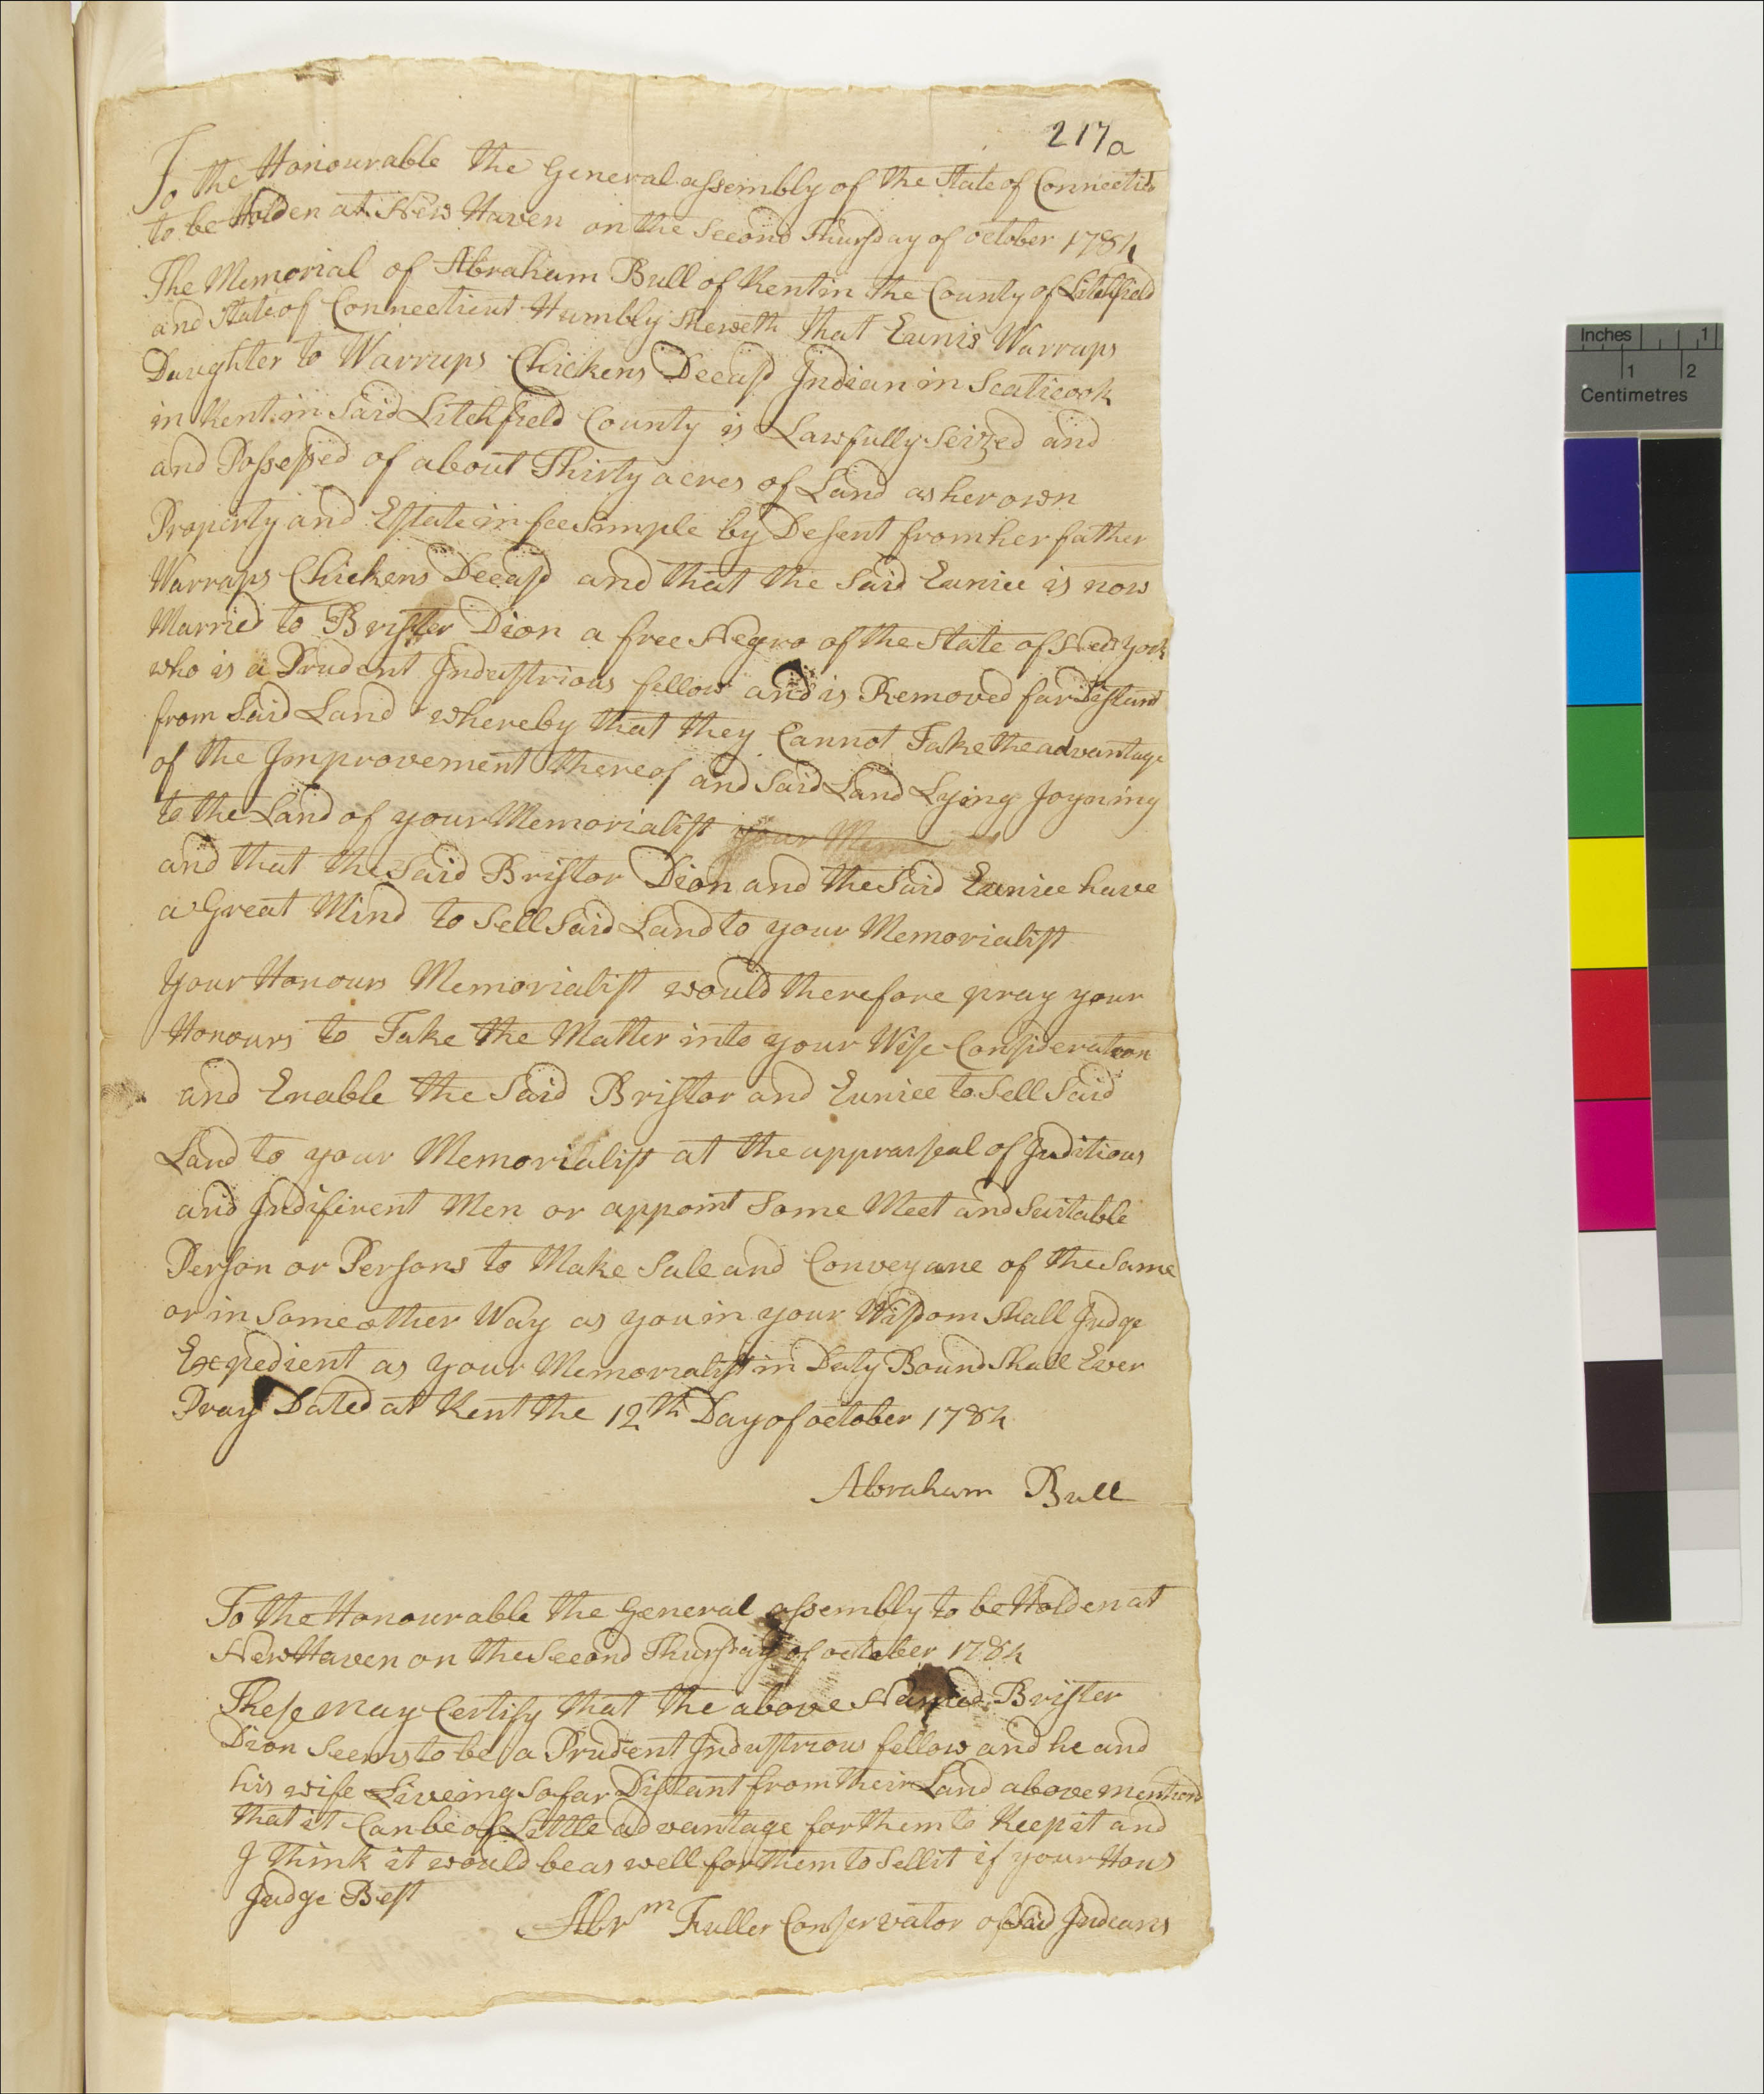 217a
To the Honourable the General assembly of the State of Connectict
to be Holden at New Haven on the Second Thursday of october 1784
The Memorial of Abraham Bull of Kent in the County of Litchfield
and State of Connecticut Humbly Sheweth that Eunis Warrups
Daughter to Warrups Chickens Deceasd Indian in Scaticook
in Kent in Said Litchfield County is Lawfully Seized and
and Possessed of about Thirty acres of Land as her own
Property and Estate in fee Simple by Desent from her father
Warrups Chickens Deceasd and that the Said Eunice is now
Married to Brister Dion a free Negro of the State of New York
who is a Prudent Industrious fellow and is Removed far Distant
from Said Land whereby that they Cannot Take the advantage
of the Improvement thereof and Said Land Lying Joyning
to the Land of your Memorialist your Mem
and that the Said Bristor Dion and the Said Eunice have
a Great Mind to Sell Said Land to your Memorialist
Your Honours Memorialist would therefore pray your
Honours to Take the Matter into your Wise Consideration
and Enable the Said Bristor and Eunice to Sell Said
Land to your Memorialist at the appraiseal of Juditious
and Indiferent Men or appoint Some Meet and Suitable
Person or Persons to Make Sale and Conveyane of the Same
or in Some other Way as you in your Wisdom Shall Judge
Expedient as your Memorialist in Duty Bound Shall Ever
Pray Dated at Kent the 12th Day of october 1784
Abraham Bull
To the Honourable the General assembly to be Holden at
New Haven on the Second Thursday of october 1784
These may Certify that the above Named Brister
Dion Seems to be a Prudent Industrious fellow and he and
his wife Liveing So far Distant from their Land above mentiond
that it Can be of Little advantage for them to Keep it and
I think it would be as well for them to Sell it if your Hons
Judge Best
Abrm Fuller Conservator of Said Indians
Inches 1
1 2
Centimetres